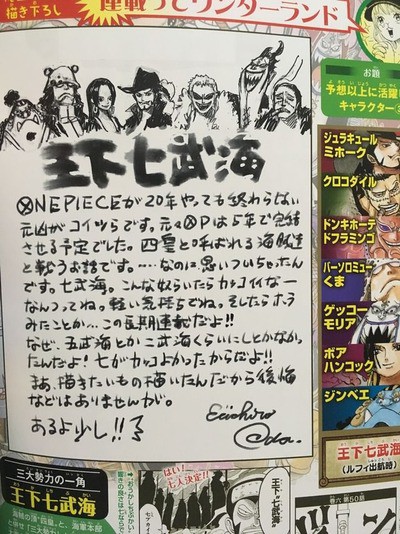 描き下ろし
連載ってワンダーランド
お題
予想以上に活躍
キャラクター
王下七武海
ⓍNE PIECEが20年やっても終わらない
元凶がコイツらです。元々ⓍPは5年で完結
させる予定でした。四皇と呼ばれる海賊達
と戦うお話です。…‥なのに思いついちゃったん
です。七武海。こんな奴らいたらカッコイイなー
なんつってね。軽い気持ちでね。そしたらホラ
みたことか…この長期連載だよ!!
なぜ、五武海とか三武海くらいにしとかなかっ
たんだよ!七がカッコよかったからだよ!!
まあ、描きたいもの描いたんだから後悔
などはありませんが。
あるよ少し!!
Eiichiro
Oda.
ジュラキュール
ミホーク
クロコダイル
ドンキホーテ
ドフラミンゴ
バーソロミュー
くま
ゲッコー
モリア
ボア
ハンコック
ジンベエ
王下七武海
(ルフィ出航時)
三大勢力の一角
王下七武海
はい!
七人決定!!
王下七武海
巻六 第50話